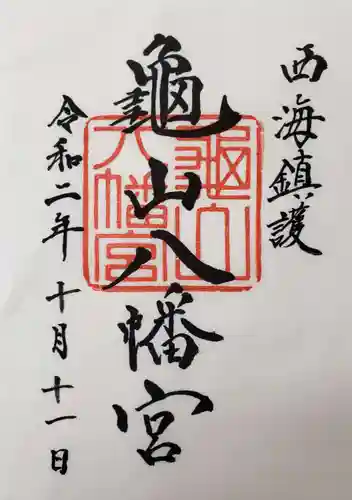 西海鎮護
龜山八幡宮
龜山八幡宮
令和二年十月十一日